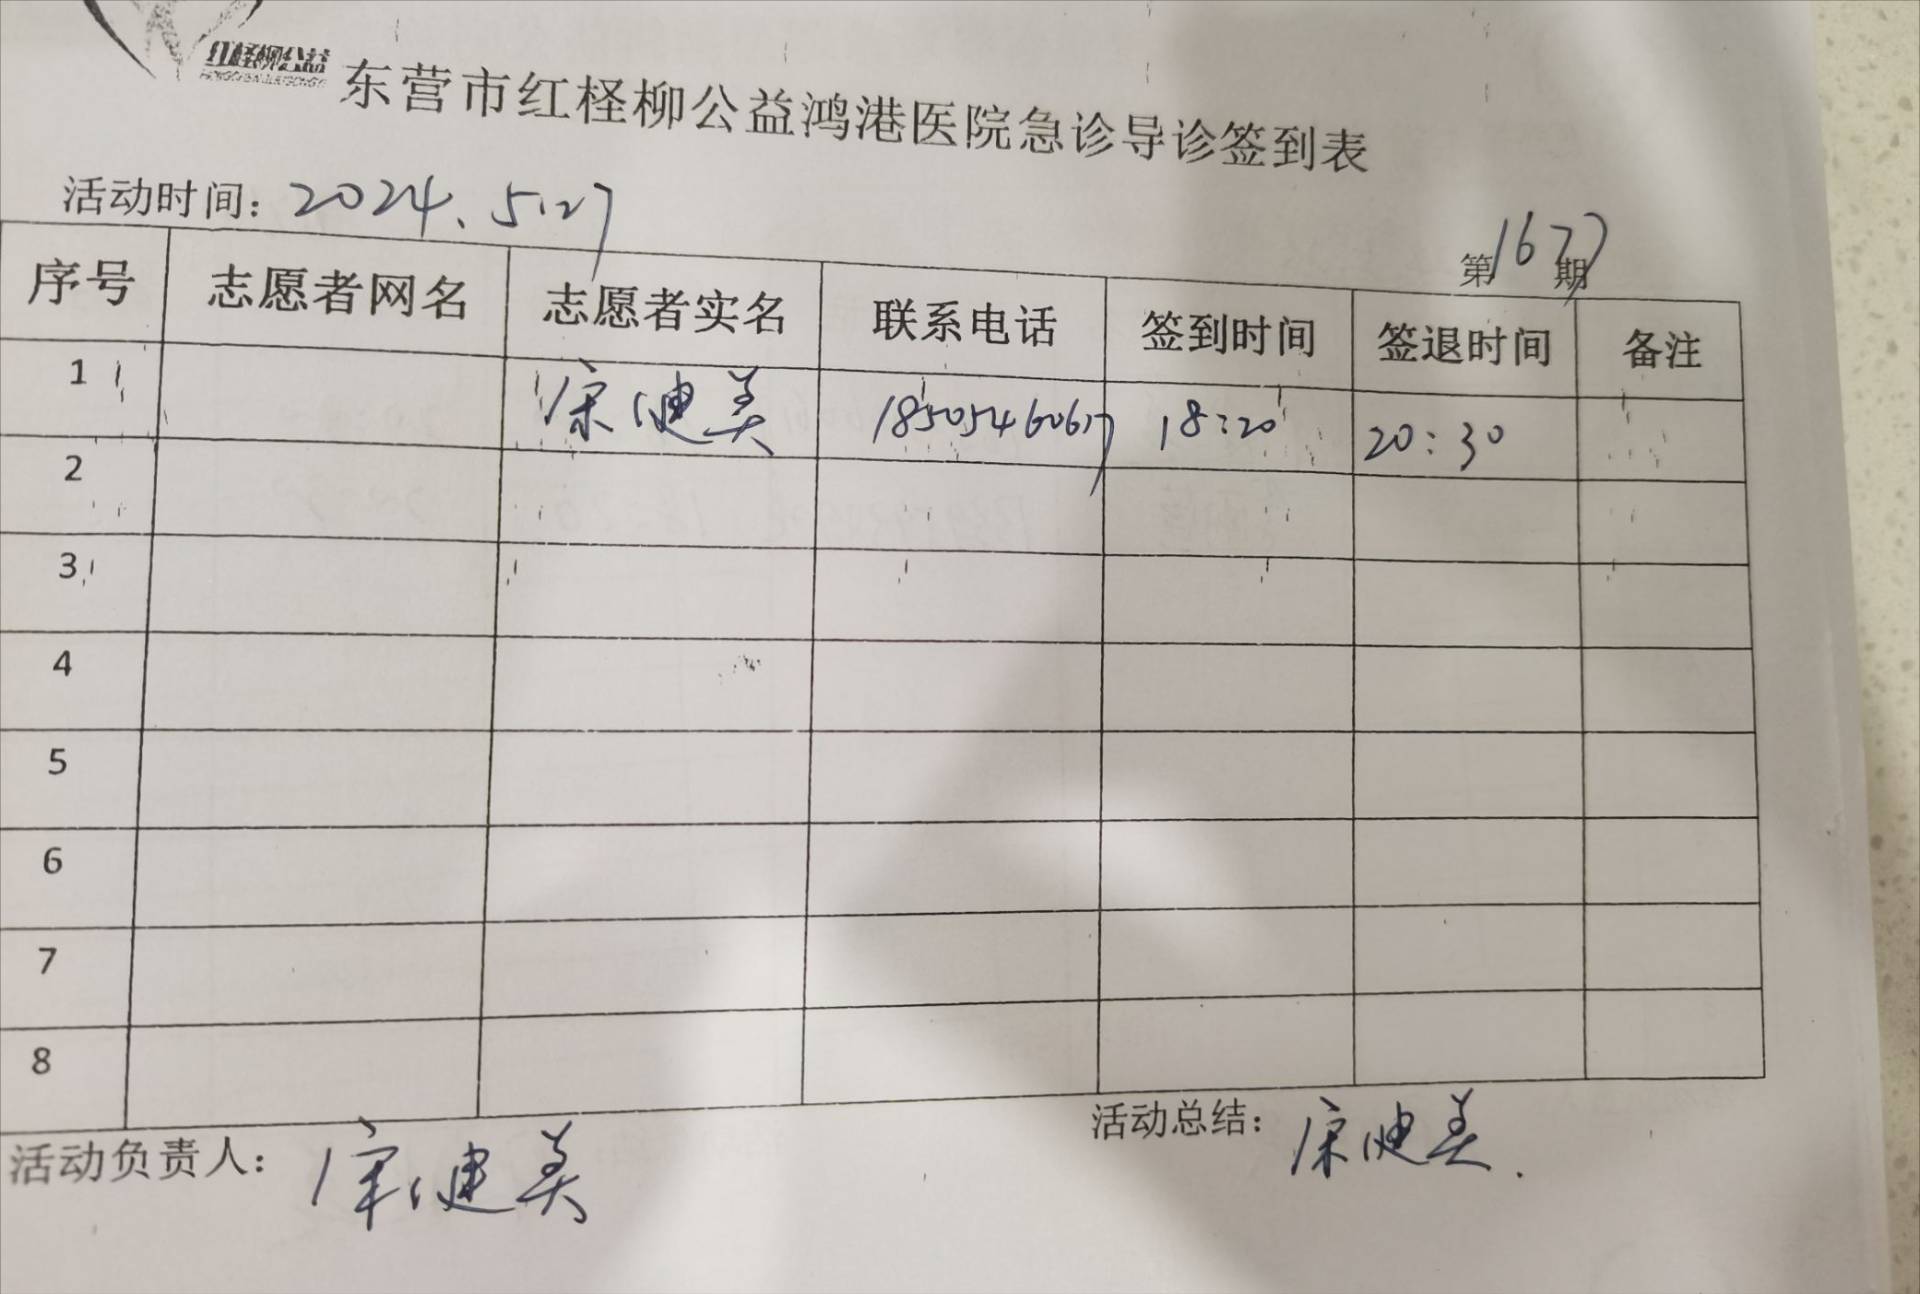 红柽柳公益
东营市红柽柳公益鸿港医院急诊导诊签到表
活动时间：2024.5.27
第1677期
序号 志愿者网名 志愿者实名 联系电话 签到时间 签退时间 备注
1 宋迪美 18505460617 18:20 20:30
2
3
4
5
6
7
8
活动负责人：宋迪美
活动总结：宋迪美.